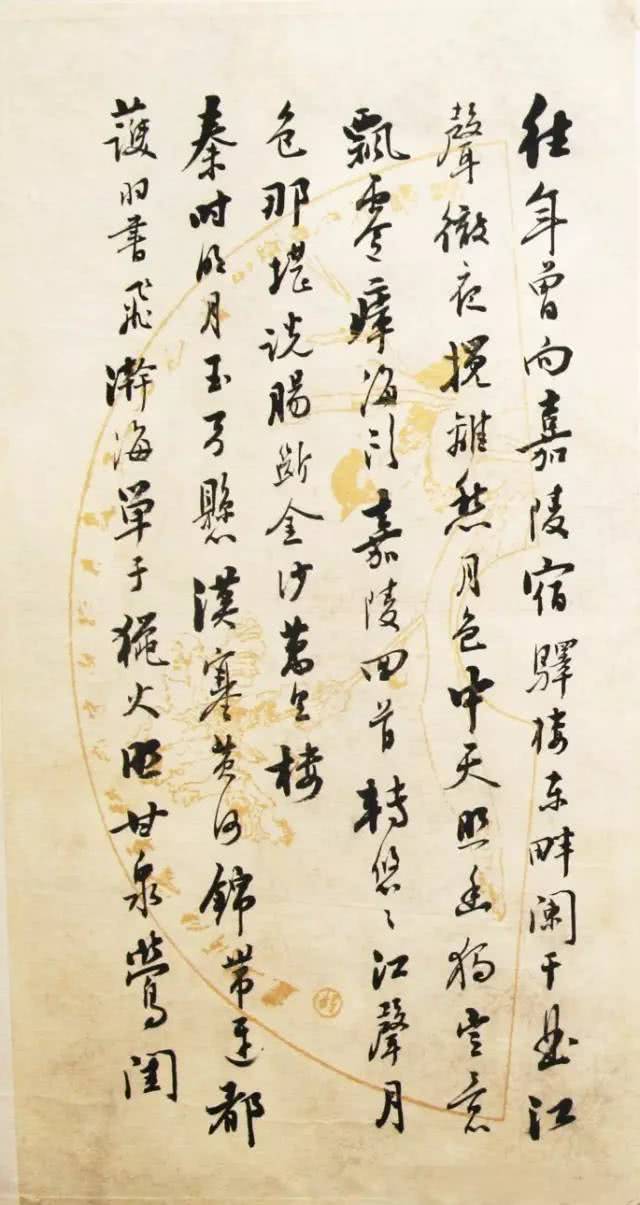 往年曾向嘉陵宿驛樓東畔闌干曲江
聲徹夜攪離愁月色中天照幽獨豈意
飄零瘴海頭嘉陵回首轉悠々江聲月
色那堪說腸斷金沙萬里樓
秦時明月玉弓懸漢塞黃河錦帶連都
護羽書飛瀚海單于獵火照甘泉鶯閨